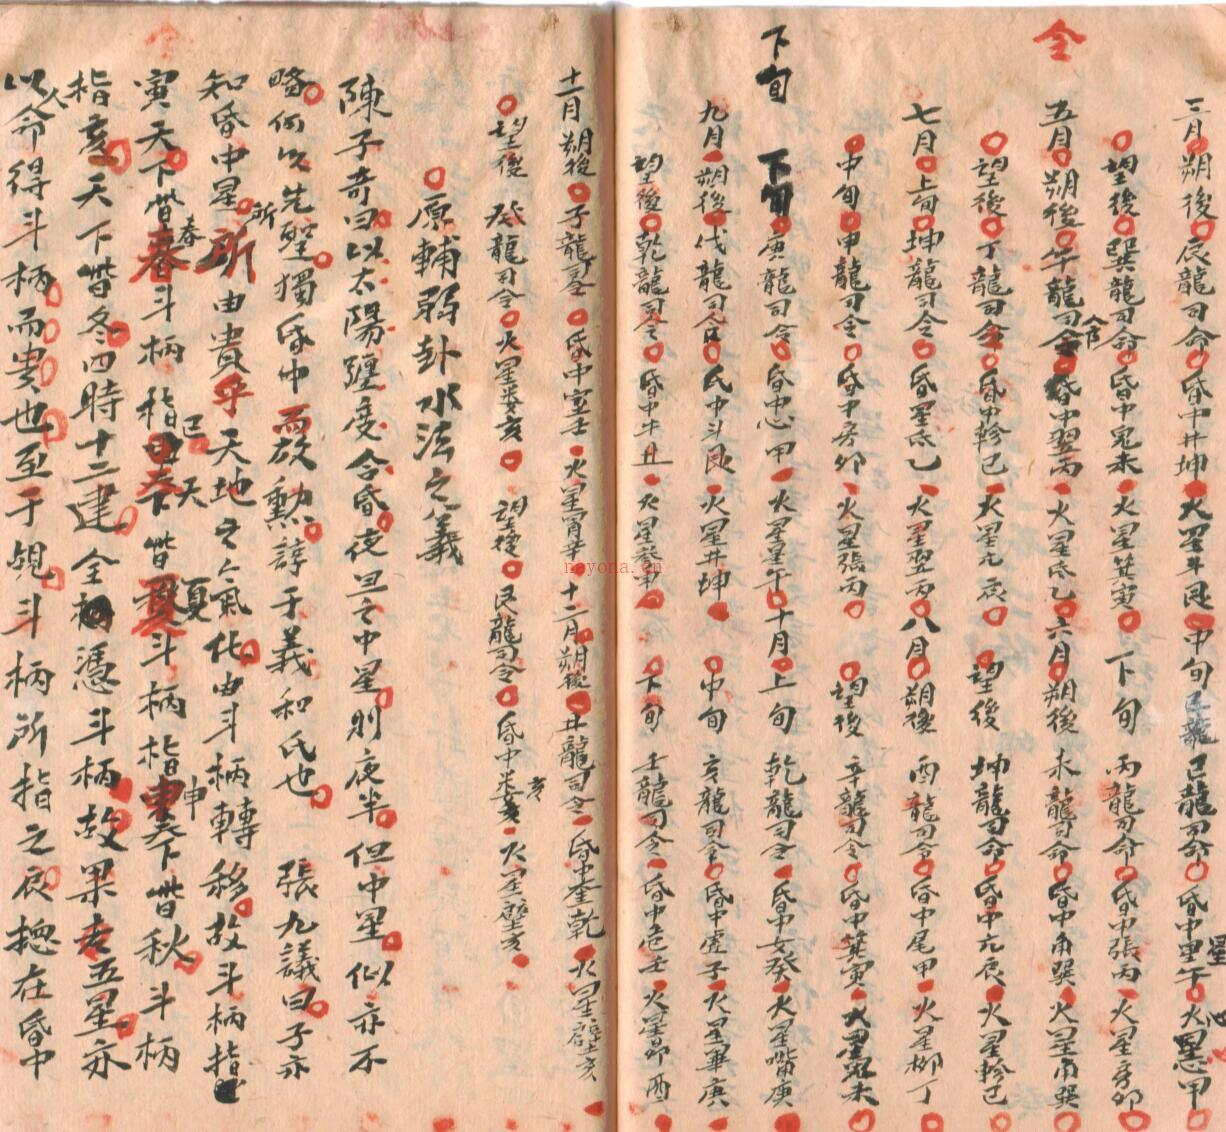 三月朔後辰龍司命昏中井坤火星斗艮中旬巳龍司命昏中星午火星心甲
望後巽龍司命昏中鬼未火星箕寅下旬丙龍司命昏中張丙火星房卯
五月朔後午龍司令昏中翌丙火星氐乙六月朔後未龍司命昏中角巽火星角巽
望後丁龍司令昏中軫巳火星亢辰望後坤龍司命昏中亢辰火星軫巳
七月上旬坤龍司令昏星氐乙火星翌丙八月朔後酉龍司令昏中尾甲火星柳丁
中旬申龍司令昏中房卯火星張丙望後辛龍司令昏中箕寅火星鬼未
下旬
下旬庚龍司令昏中心甲火星星午十月上旬乾龍司令昏中女癸火星嘴庚
九月朔後戌龍司令昏中斗艮火星井坤中旬亥龍司令昏中虛子火星畢庚
望後乾龍司令昏中牛丑火星參申下旬壬龍司令昏中危壬火星昴酉
十一月朔後子龍司令昏中室壬火星胃辛十二月朔後丑龍司令昏中奎乾火星壁亥
望後癸龍司令火星婁亥望後艮龍司令昏中婁亥火星壁亥
原輔弼卦水法之義
陳子奇曰以太陽躔度令昏夜旦之中星則夜半但中星似亦不
略何以先聖獨昏中而放勲諄于義和氏也張九議曰子亦
知昏中星所由貴乎天地之氣化由斗柄轉移故斗柄指
寅天下皆春斗柄指巳天下皆夏斗柄指申天下皆秋斗柄
指亥天下皆冬四時十二建全憑斗柄故果老五星亦
以人命得斗柄而貴也至于覘斗柄所指之辰摠在昏中
nayona.cn